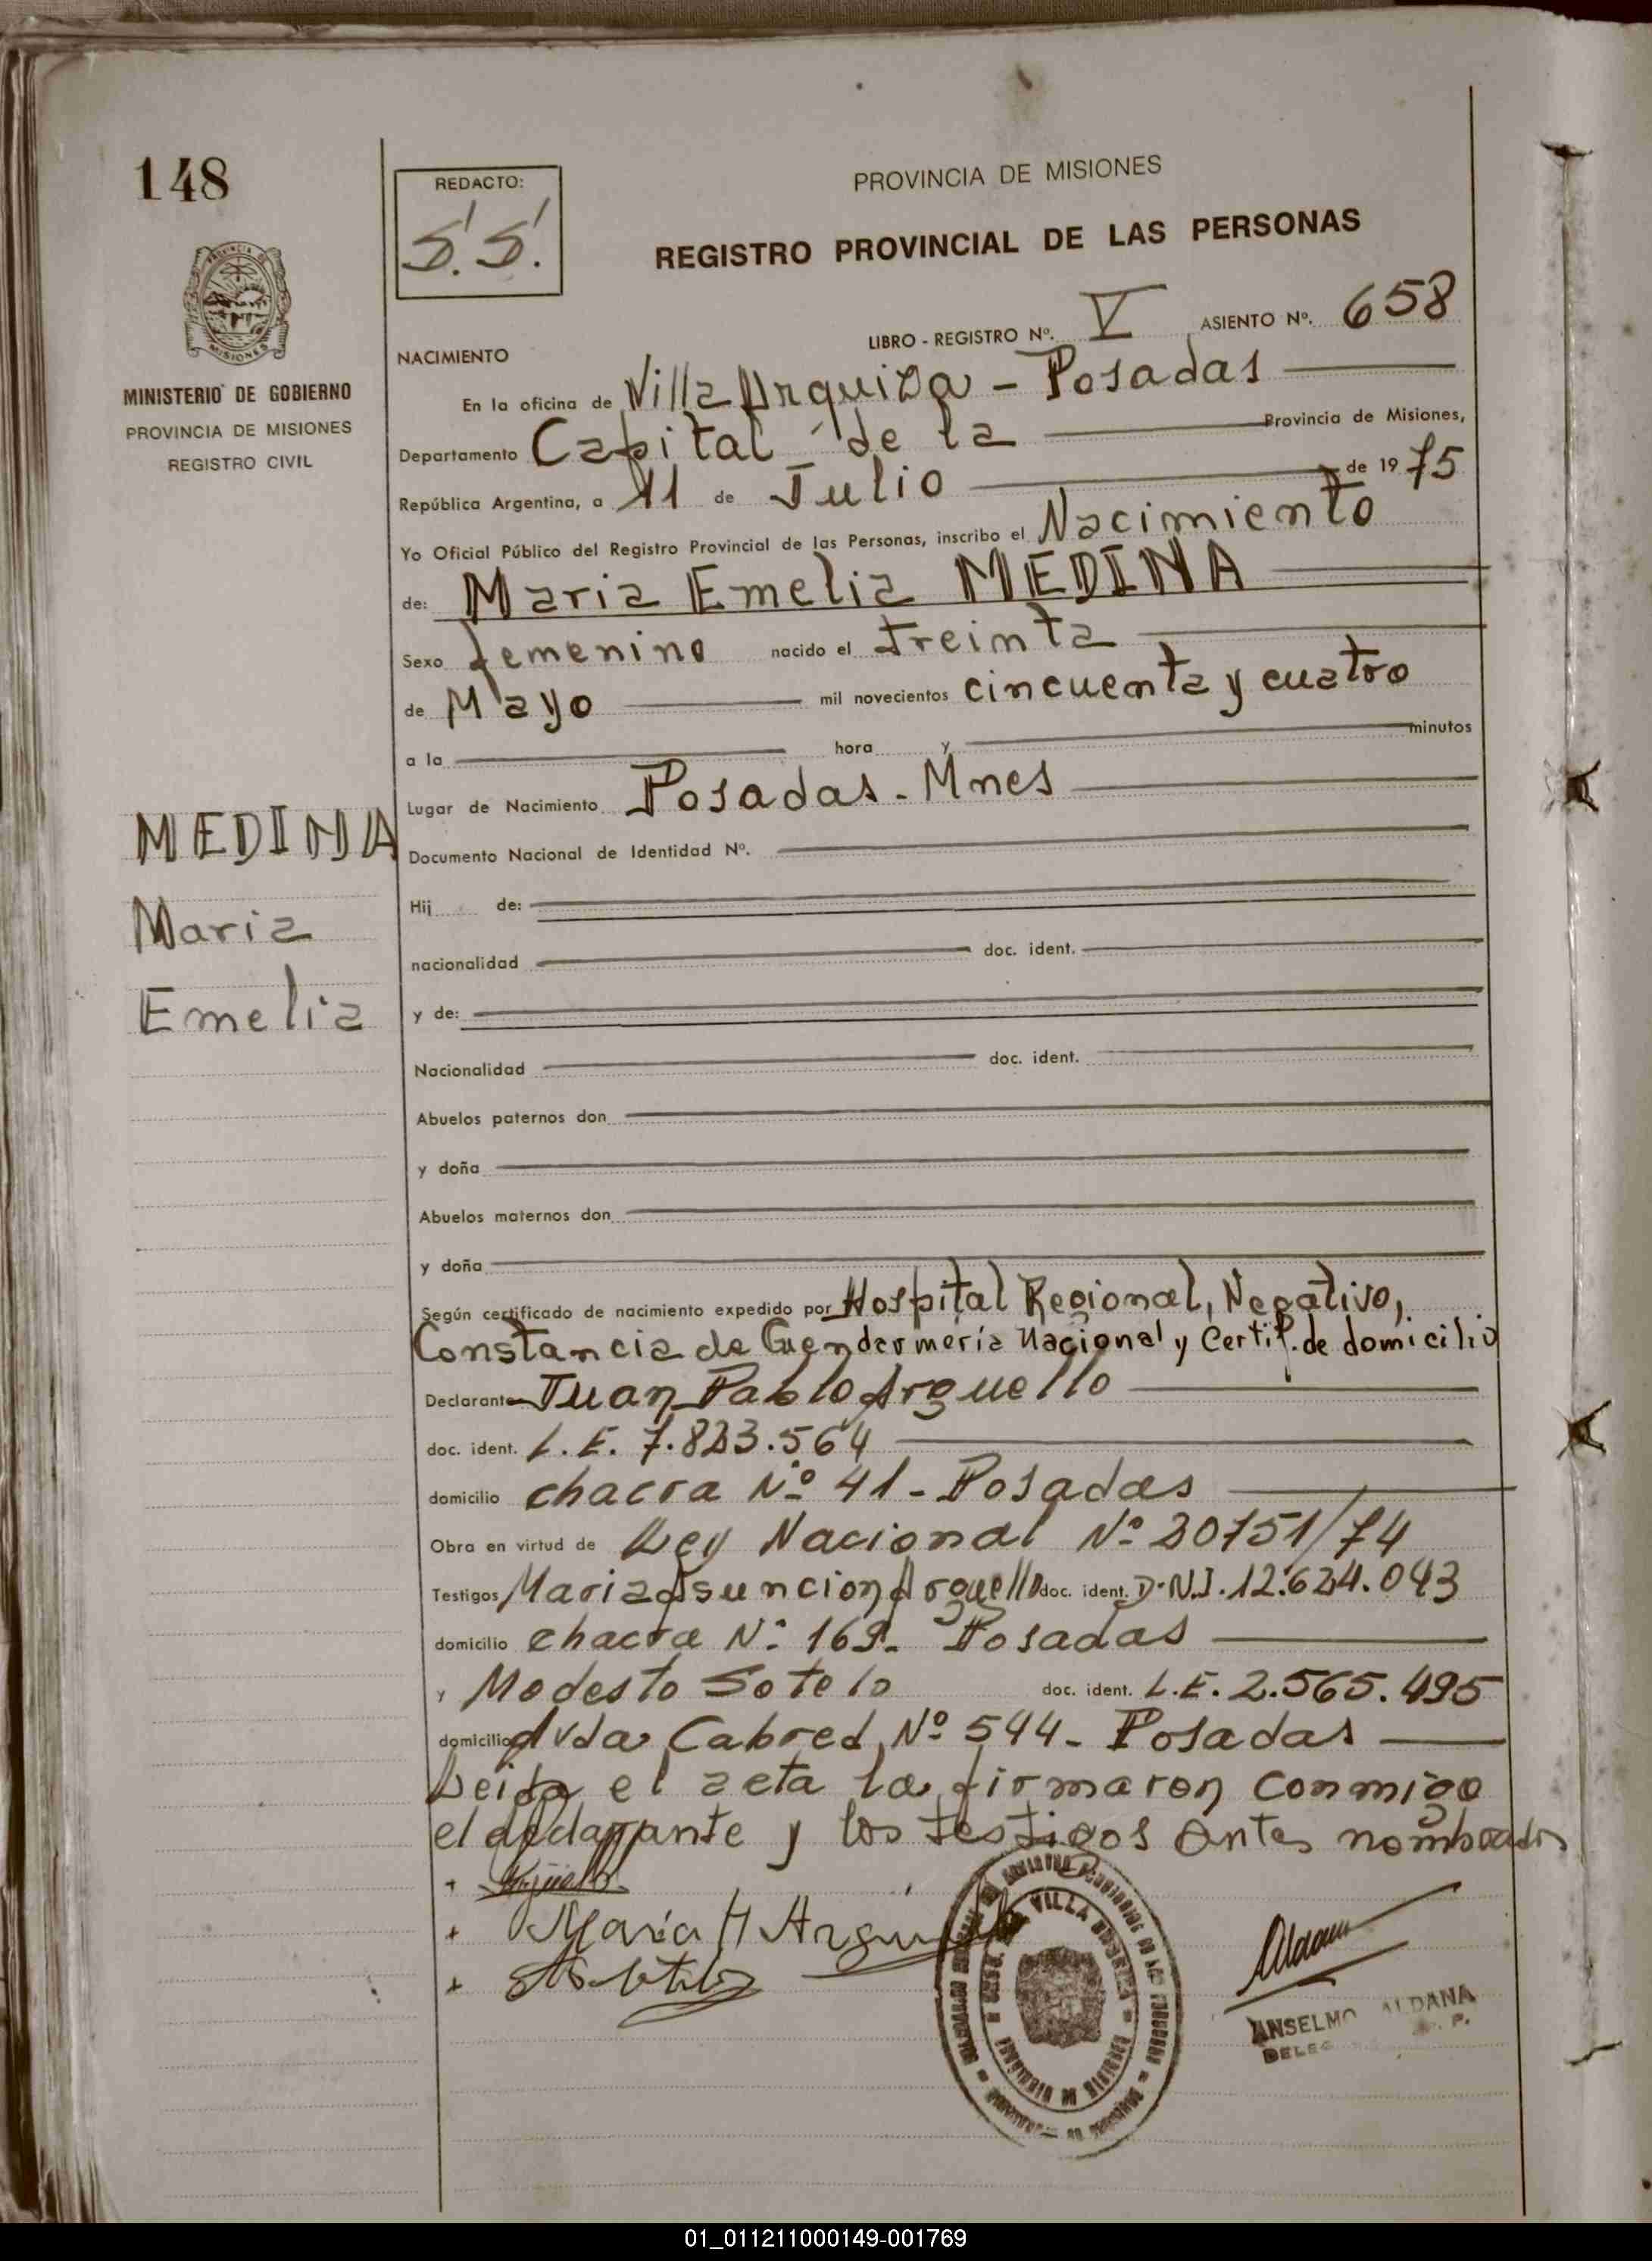 148
REDACTO:
S. S.
PROVINCIA DE MISIONES
REGISTRO PROVINCIAL DE LAS PERSONAS
MISIONES
MINISTERIO DE GOBIERNO
PROVINCIA DE MISIONES
REGISTRO CIVIL
LIBRO - REGISTRO Nº. V ASIENTO Nº. 658
NACIMIENTO
En la oficina de Villa Urquiza - Posadas
Departamento Capital de la Provincia de Misiones,
República Argentina, a 11 de Julio de 1975
Yo Oficial Público del Registro Provincial de las Personas, inscribo el Nacimiento
de: Maria Emelia MEDINA
Sexo femenino nacido el Treinta
de Mayo mil novecientos cincuenta y cuatro
a la hora y minutos
Lugar de Nacimiento Posadas - Mnes
MEDINA
Maria
Emelia
Documento Nacional de Identidad Nº.
Hij de:
nacionalidad doc. ident.
y de:
Nacionalidad doc. ident.
Abuelos paternos don
y doña
Abuelos maternos don
y doña
Según certificado de nacimiento expedido por Hospital Regional, Negativo,
Constancia de Guendarmería Nacional y Certif. de domicilio
Declarante Juan Pablo Arguello
doc. ident. L.E. 7.823.564
domicilio chacra Nº 41 - Posadas
Obra en virtud de Ley Nacional Nº 20751/74
Testigos Maria Asuncion Arguello doc. ident. D.N.I. 12.624.043
domicilio chacra Nº 169. Posadas
y Modesto Sotelo doc. ident. L.E. 2.565.495
domicilio Avda Cabred Nº 544 - Posadas
Leida el acta la firmaron conmigo
el declarante y los testigos antes nombrados
Maria A Arguello
VILLA URQUIZA
ANSELMO ALDANA
01_011211000149-001769